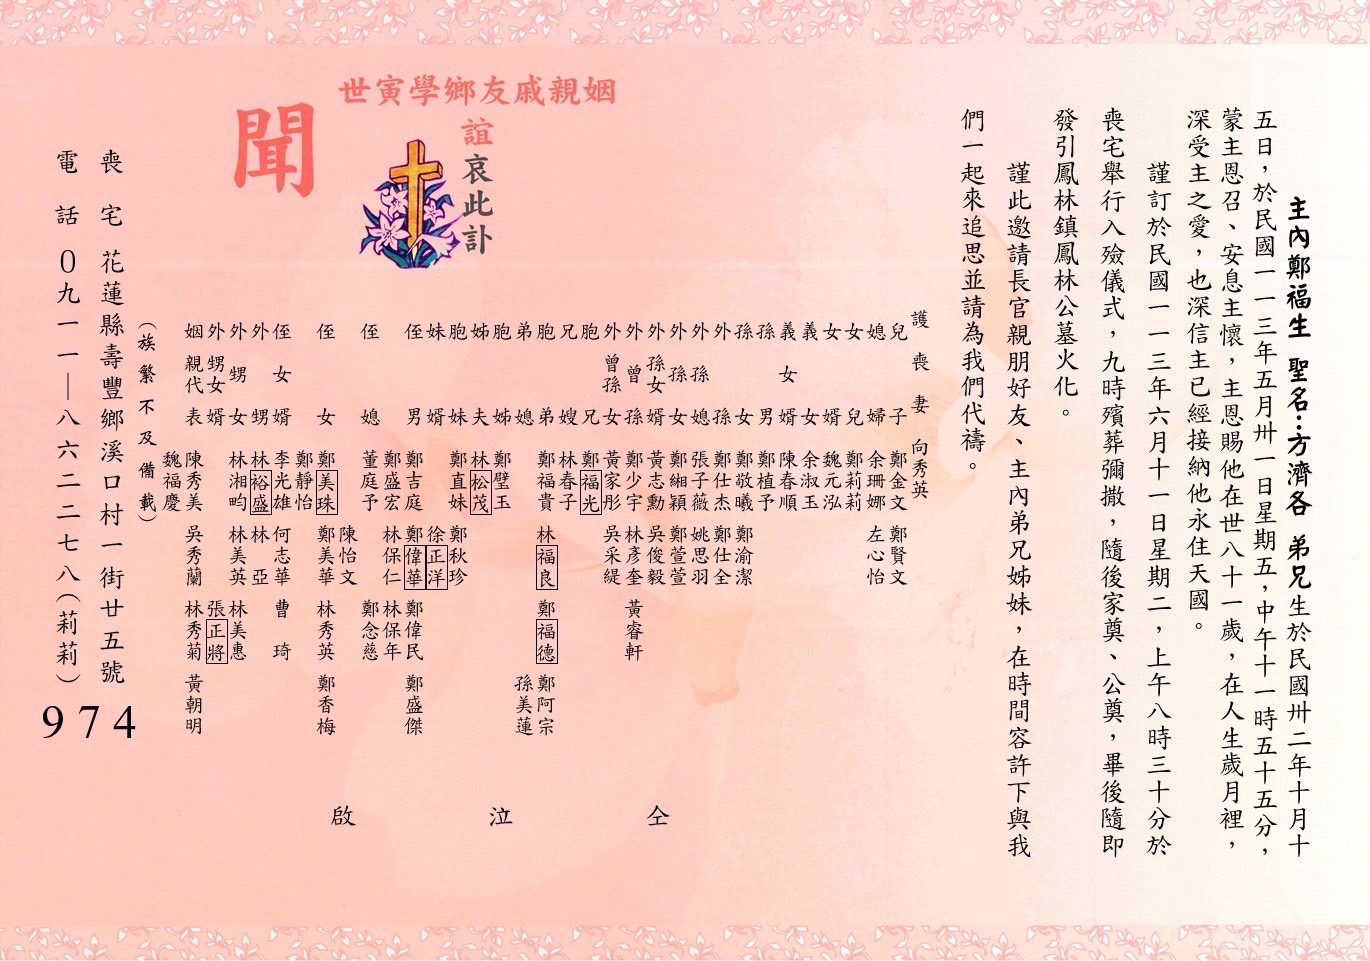 主內鄭福生 聖名：方濟各 弟兄生於民國卅二年十月十
五日，於民國一一三年五月卅一日星期五，中午十一時五十五分，
蒙主恩召、安息主懷，主恩賜他在世八十一歲，在人生歲月裡，
深受主之愛，也深信主已經接納他永住天國。
謹訂於民國一一三年六月十一日星期二，上午八時三十分於
喪宅舉行入殮儀式，九時殯葬彌撒，隨後家奠、公奠，畢後隨即
發引鳳林鎮鳳林公墓火化。
謹此邀請長官親朋好友、主內弟兄姊妹，在時間容許下與我
們一起來追思並請為我們代禱。
護喪妻 向秀英
兒子 鄭金文 鄭賢文
媳婦 余珊娜 左心怡
女兒 鄭莉莉
女婿 魏元泓
義女 余淑玉
義女婿 陳春順
孫男 鄭植予
孫女 鄭敬曦 鄭渝潔
外孫 鄭仕杰 鄭仕全
外孫媳 張子薇 姚思羽
外孫女 鄭緗穎 鄭萱萱
外孫女婿 黃志勳 吳俊毅
外曾孫 鄭少宇 林彥奎 黃睿軒
外曾孫女 黃家彤 吳采緹
胞兄 鄭福光
兄嫂 林春子
胞弟 鄭福貴 林福良 鄭福德 鄭阿宗
弟媳 孫美蓮
胞姊 鄭璧玉
姊夫 林松茂
胞妹 鄭直妹 鄭秋珍
妹婿 徐正洋
侄男 鄭吉庭 鄭偉華 鄭偉民 鄭盛傑
鄭盛宏 林保仁 林保年
侄媳 董庭予 鄭念慈
陳怡文
侄女 鄭美珠 鄭美華 林秀英 鄭香梅
鄭靜怡
侄女婿 李光雄 何志華 曹琦
外甥 林裕盛 林亞
外甥女 林湘昀 林美英 林美惠
外甥女婿 張正將
姻親代表 陳秀美 吳秀蘭 林秀菊 黃朝明
魏福慶
（族繁不及備載）
仝泣啟
姻親戚友鄉學寅世
誼哀此訃
聞
喪宅 花蓮縣壽豐鄉溪口村一街廿五號
電話 0九一一—八六二二七八（莉莉）
974